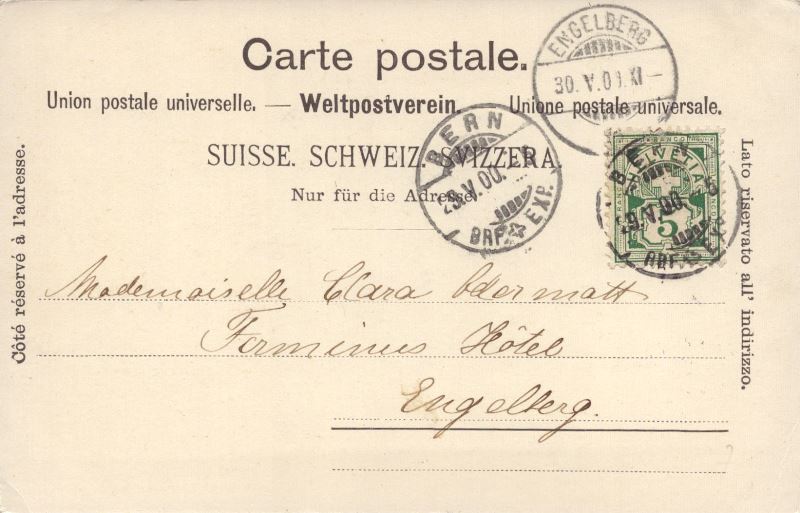 Carte postale.
Union postale universelle. — Weltpostverein. — Unione postale universale.
SUISSE. SCHWEIZ. SVIZZERA.
Nur für die Adresse.
Côté réservé à l'adresse.
Lato riservato all' indirizzo.
ENGELBERG
30. V. 00. XI —
BERN
29. V. 00.
BRF. EXP.
BERN
HELVETIA
FRANCO
5
V. 00.
BRF. EXP.
Mademoiselle Clara Odermatt
Terminus Hôtel
Engelberg.